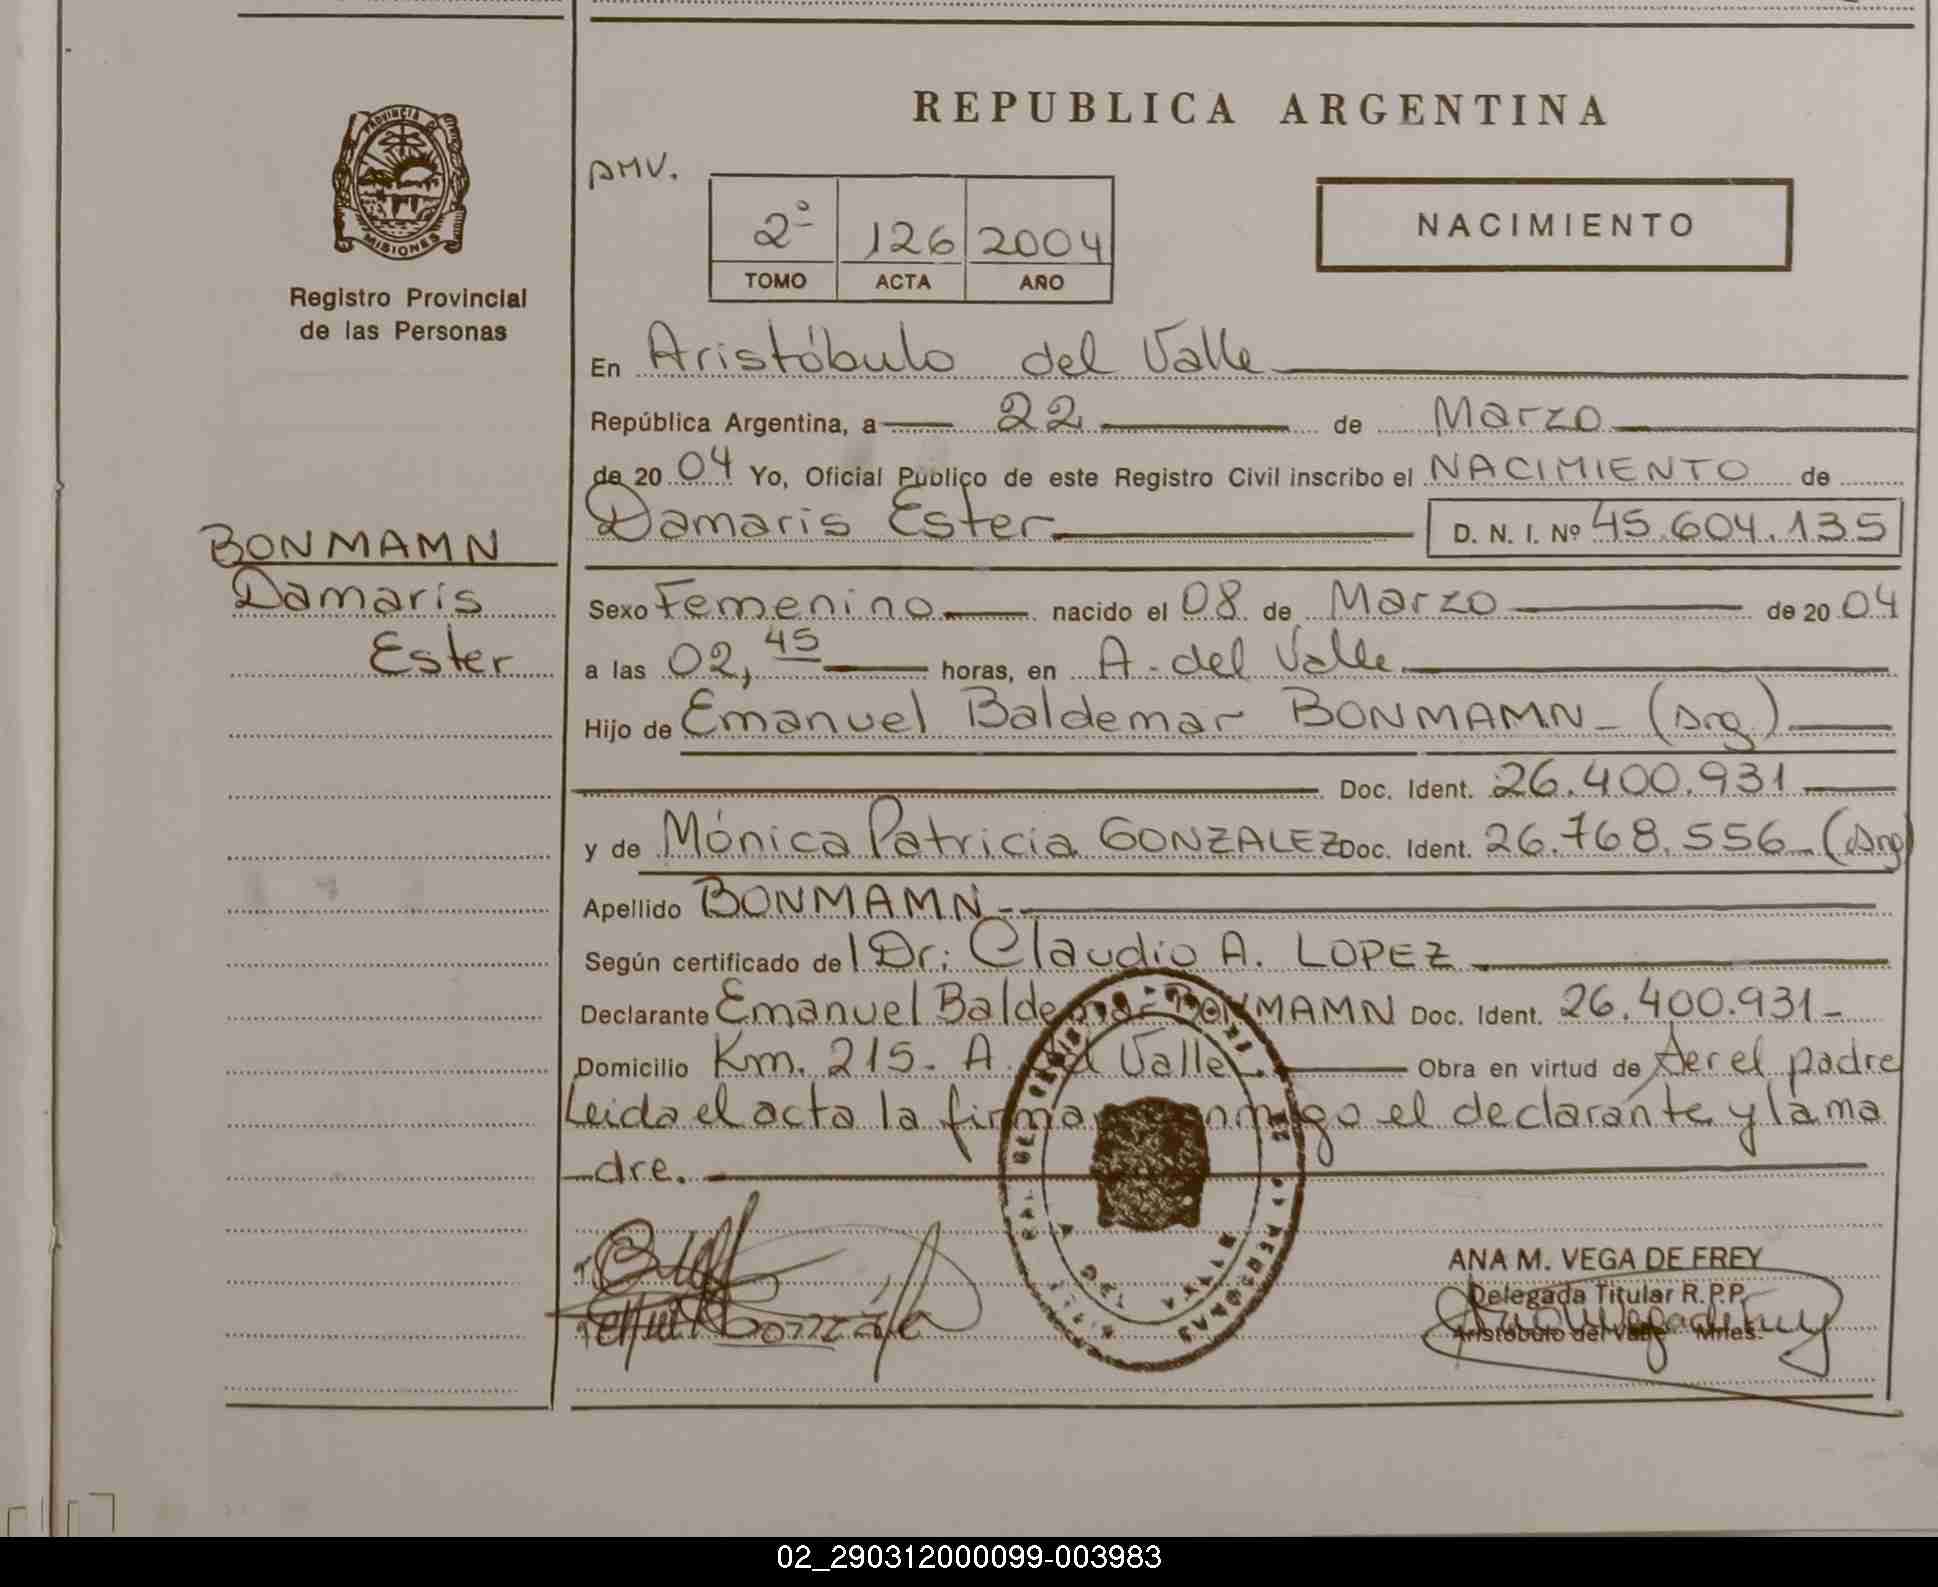 REPUBLICA ARGENTINA
PROVINCIA DE
MISIONES
Registro Provincial
de las Personas
AMV.
2º 126 2004
TOMO ACTA AÑO
NACIMIENTO
En Aristóbulo del Valle
República Argentina, a 22 de Marzo
de 20 04 Yo, Oficial Público de este Registro Civil inscribo el NACIMIENTO de
Damaris Ester D. N. I. Nº 45.604.135
BONMAMN
Damaris
Ester
Sexo Femenino nacido el 08 de Marzo de 20 04
a las 02,45 horas, en A. del Valle
Hijo de Emanuel Baldemar BONMAMN - (Arg.)
Doc. Ident. 26.400.931
y de Mónica Patricia GONZALEZ Doc. Ident. 26.768.556 - (Arg)
Apellido BONMAMN -
Según certificado del Dr: Claudio A. LOPEZ
Declarante Emanuel Baldemar BONMAMN Doc. Ident. 26.400.931 -
Domicilio Km. 215 - A. del Valle. Obra en virtud de ser el padre
Leida el acta la firman conmigo el declarante y la ma
dre.
ANA M. VEGA DE FREY
Delegada Titular R.P.P.
Aristóbulo del Valle Mnes.
02_290312000099-003983